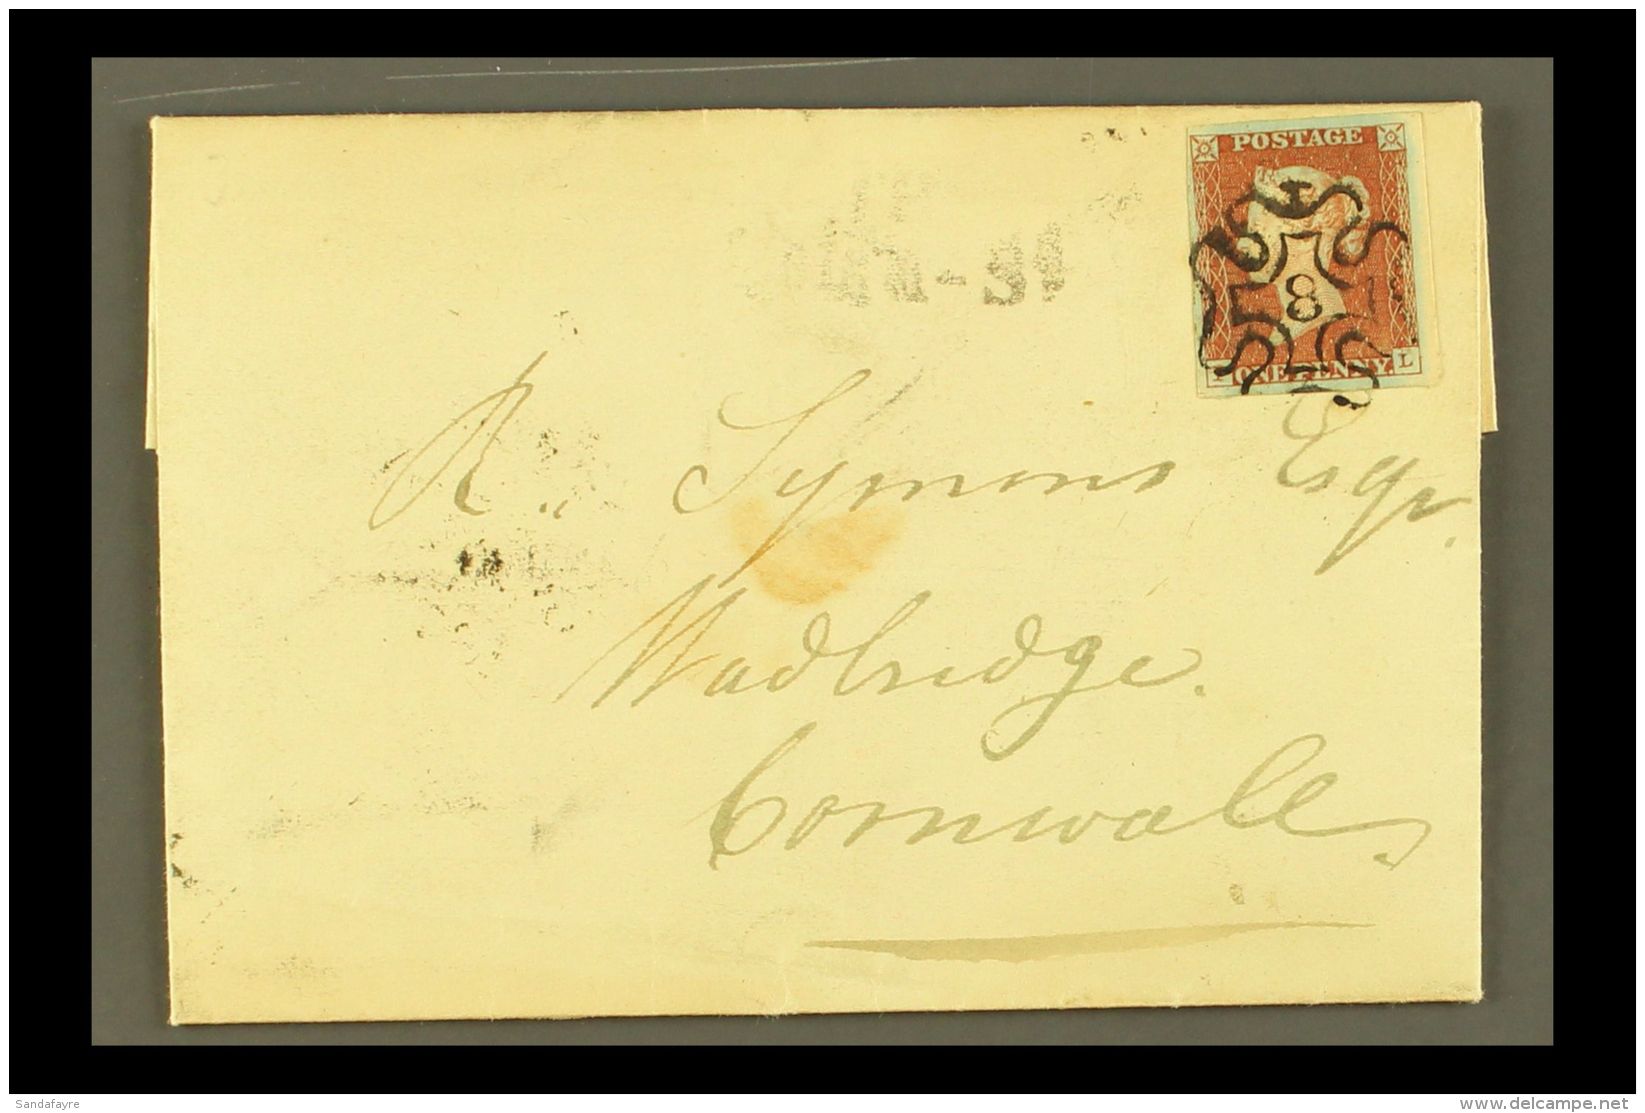 POSTAGE
8
L
ONE PENNY.
R.. Symons Esqr.
Wadbridge.
Cornwall
Sandafayre
www.delcampe.net